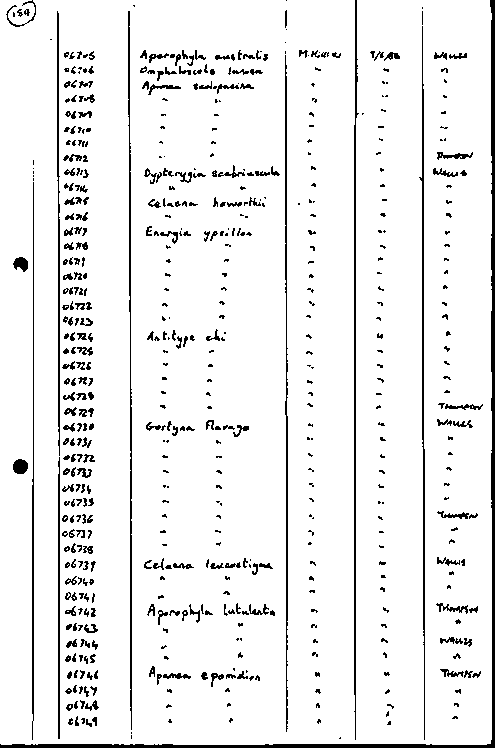 159
06705 Aporophyla australis M. Hillier 7/6/88 WALLIS
06706 Omphaloscelis lunosa " " "
06707 Apamea " " "
06708 " " " " "
06709 " " " " "
06710 " " " " "
06711 " " " " "
06712 " " " " THOMPSON
06713 Dypterygia scabriuscula " " WALLIS
06714 " " " " "
06715 Celaena haworthii " " "
06716 " " " " "
06717 Enargia ypsillon " " "
06718 " " " " "
06719 " " " " "
06720 " " " " "
06721 " " " " "
06722 " " " " "
06723 " " " " "
06724 Antitype chi " " "
06725 " " " " "
06726 " " " " "
06727 " " " " "
06728 " " " " "
06729 " " " " THOMPSON
06730 Gortyna flavago " " WALLIS
06731 " " " " "
06732 " " " " "
06733 " " " " "
06734 " " " " "
06735 " " " " "
06736 " " " " THOMPSON
06737 " " " " "
06738 " " " " "
06739 Celaena leucostigma " " WALLIS
06740 " " " " "
06741 " " " " "
06742 Aporophyla lutulenta " " THOMPSON
06743 " " " " "
06744 " " " " WALLIS
06745 " " " " "
06746 Apamea epomidion " " THOMPSON
06747 " " " " "
06748 " " " " "
06749 " " " " "